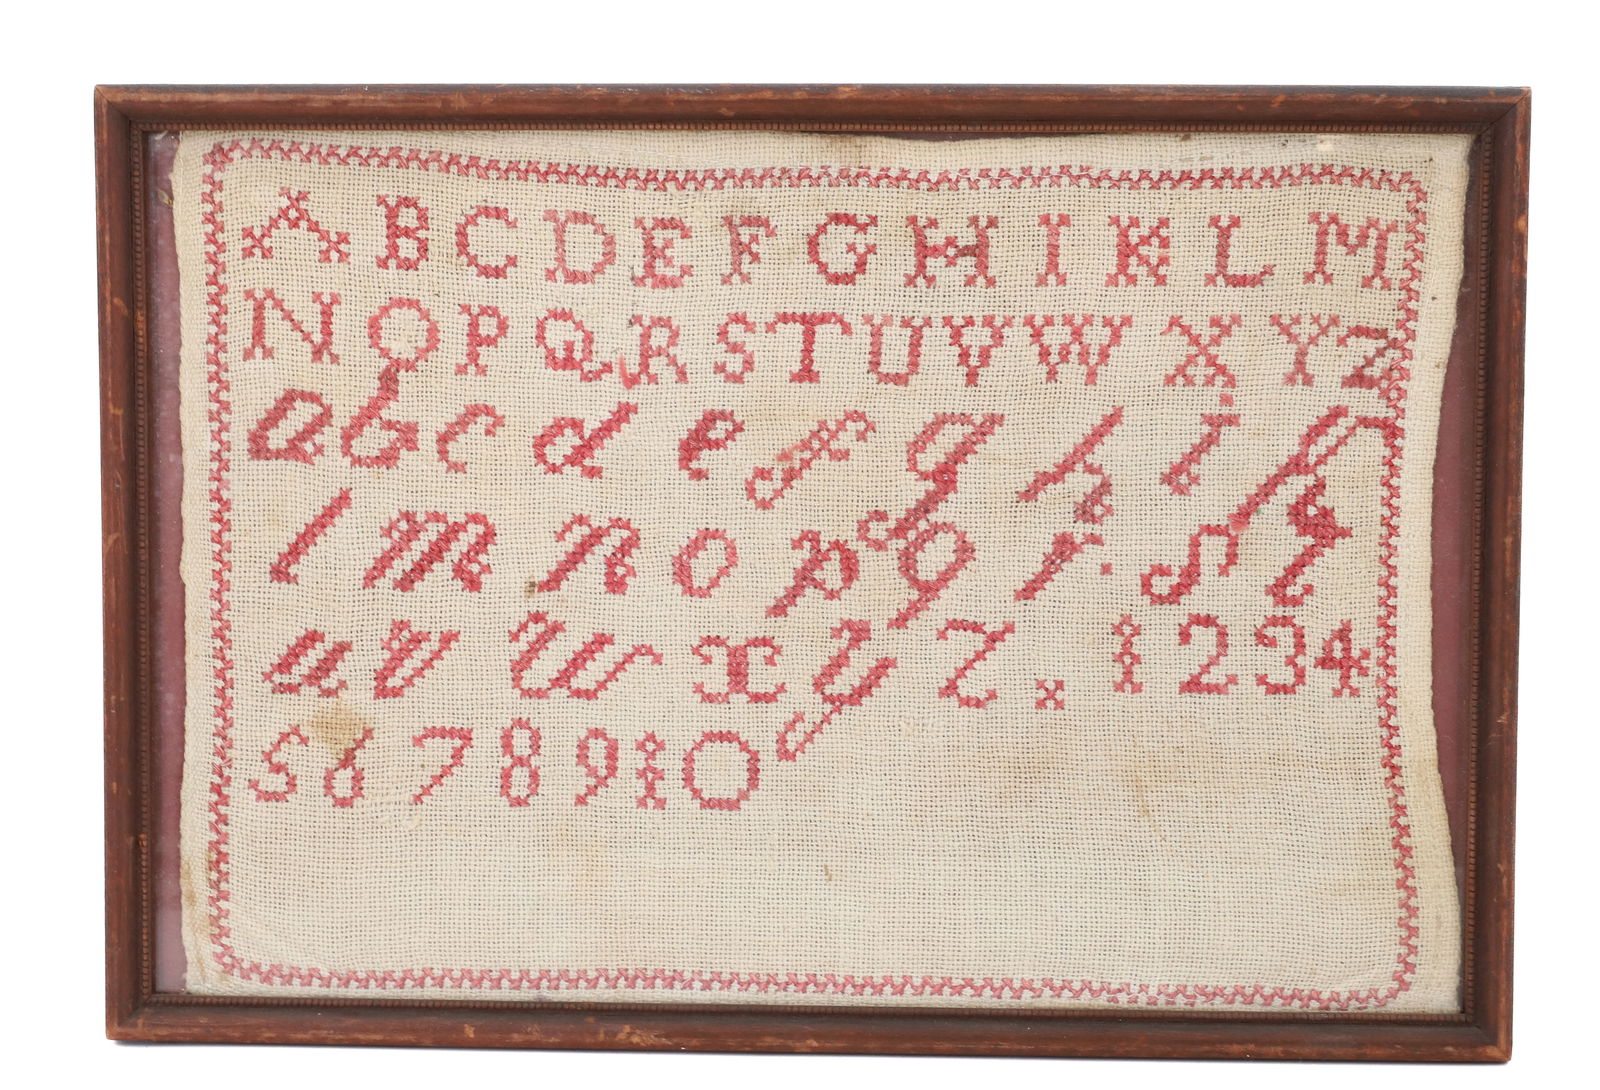 A B C D E F G H I K L M
N O P Q R S T U V W X Y Z
a b c d e f g h i k
l m n o p q r s t
u v w x y z . 1 2 3 4
5 6 7 8 9 10